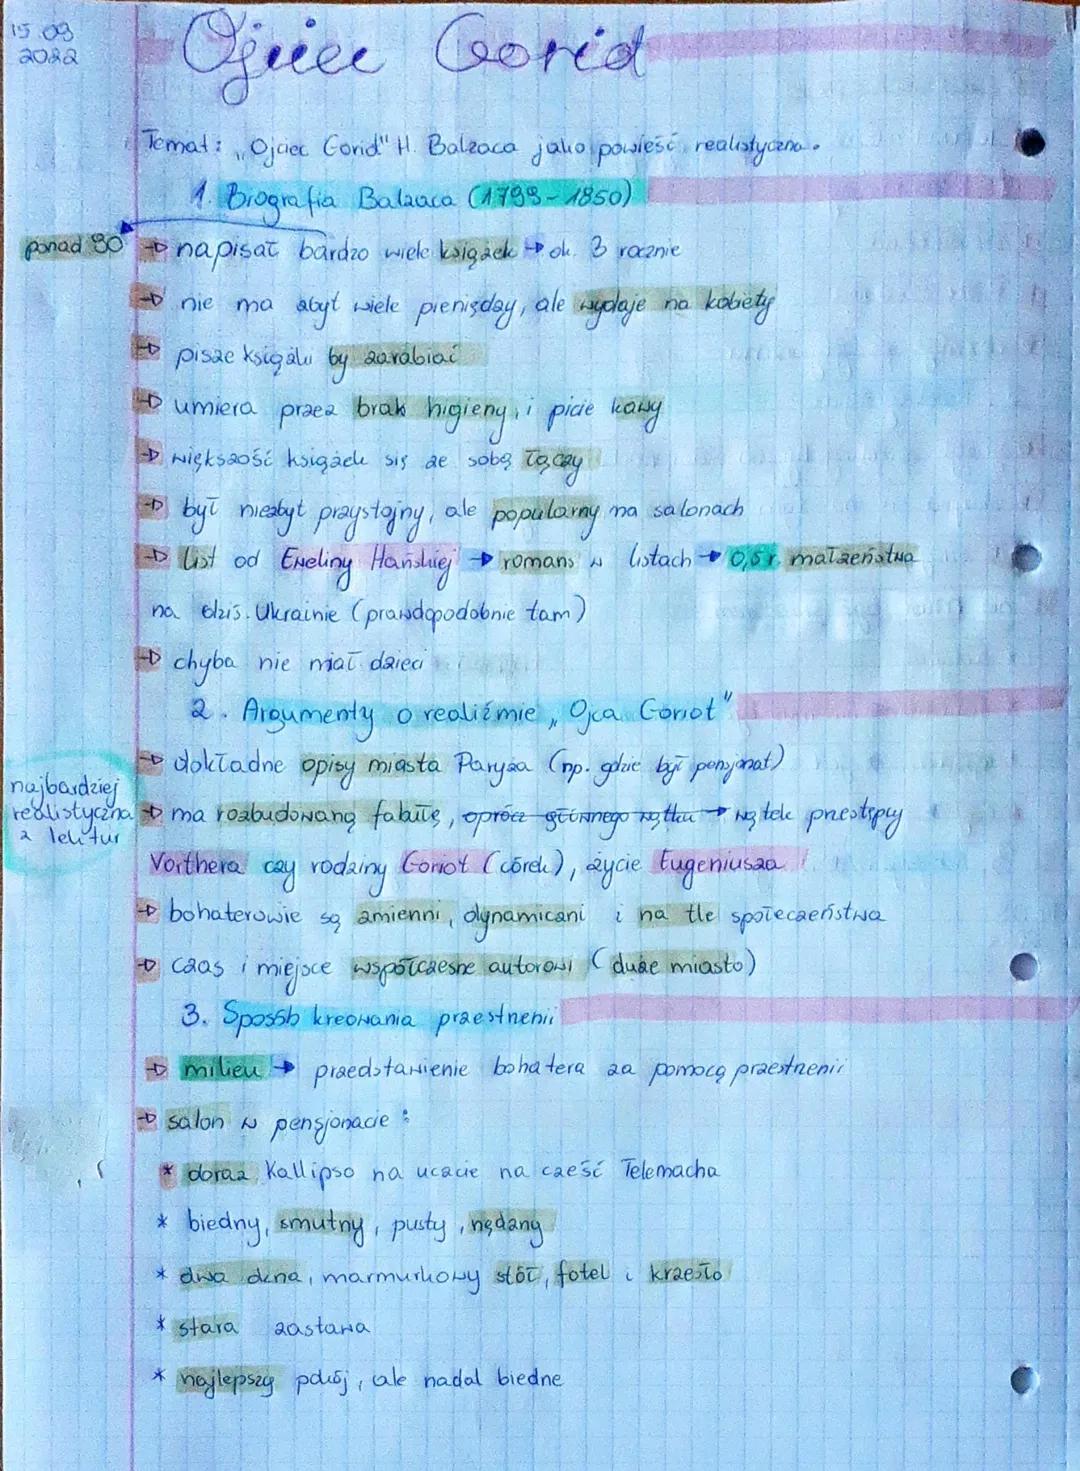 15 09
2022
Ojciec Goriot
Temat: „Ojciec Goriot" H. Balzaca jako powieść realistyczna.
1. Biografia Balzaca (1799-1850)
ponad 90
→ napisał bardzo wiele książek → ok. 3 rocznie
→ nie ma zbyt wiele pieniędzy, ale wydaje na kobiety
→ pisze książki by zarabiać
→ umiera przez brak higieny, i picie kawy
→ większość książek się ze sobą łączy
→ był niezbyt przystojny, ale popularny na salonach
→ list od Eweliny Hańskiej → romans w listach → 0,5 r. małżeństwa
na dzis. Ukrainie (prawdopodobnie tam)
→ chyba nie miał dzieci
2. Argumenty o realiźmie „Ojca Goriot"
→ dokładne opisy miasta Paryża (np. gdzie był pensjonat)
najbardziej
realistyczna
z lektur
→ ma rozbudowaną fabułę, oprócz głównego wątku → wątek przestępcy
Vorthera czy rodziny Goriot (córek), życie Eugeniusza
→ bohaterowie są zmienni, dynamiczni i na tle społeczeństwa
→ czas i miejsce współczesne autorowi (duże miasto)
3. Sposób kreowania przestrzenii
→ milieu → przedstawienie bohatera za pomocą przestrzenii
→ salon w pensjonacie:
* doraz Kallipso na uczcie na cześć Telemacha
* biedny, smutny, pusty, nędzny
* dwa okna, marmurkowy stół, fotel i krzesło
* stara zastawa
* najlepszy pokój, ale nadal biedne